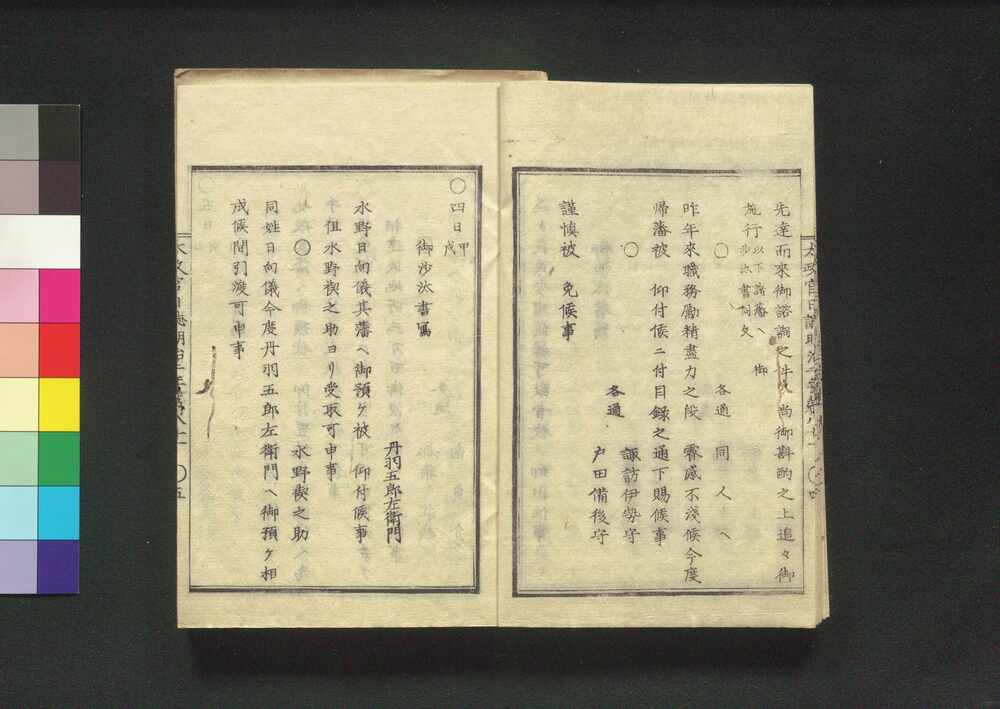 先達而來御諮詢之件々尚御斟酌之上追々御
施行以下諸藩ヘ御
沙汰書同文
○
各通 同人々ヘ
昨年來職務勵精盡力之段 睿感不淺候今度
歸藩被 仰付候ニ付目錄之通下賜候事
○
諏訪伊勢守
各通
戸田備後守
謹慎被 免候事
○四日甲戌
御沙汰書寫
丹羽五郎左衞門
水野日向儀其藩ヘ御預ケ被 仰付候事
但水野禊之助ヨリ受取可申事
○
水野禊之助
同姓日向儀今度丹羽五郎左衞門ヘ御預ケ相
成候間引渡可申事
○五